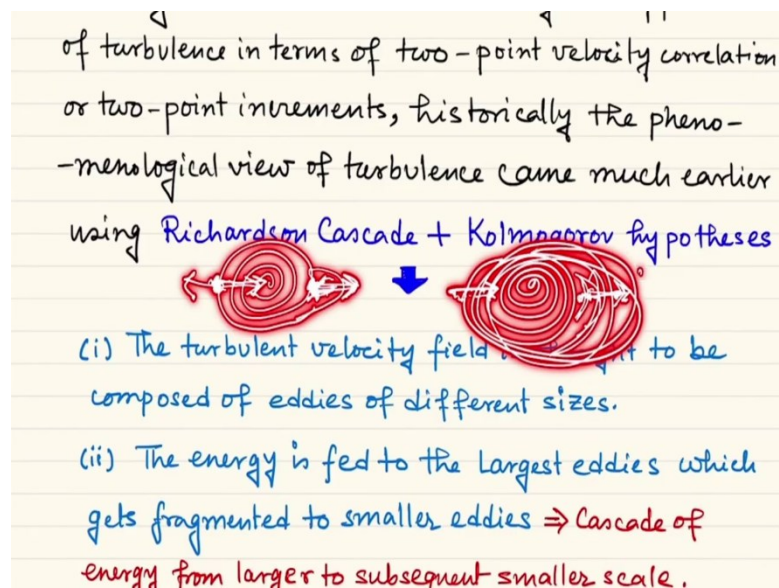 of turbulence in terms of two-point velocity correlation
or two-point increments, historically the pheno-
-menological view of turbulence came much earlier
using Richardson Cascade + Kolmogorov hypotheses
(i) The turbulent velocity field to be
composed of eddies of different sizes.
(ii) The energy is fed to the Largest eddies which
gets fragmented to smaller eddies ⇒ Cascade of
energy from larger to subsequent smaller scale.